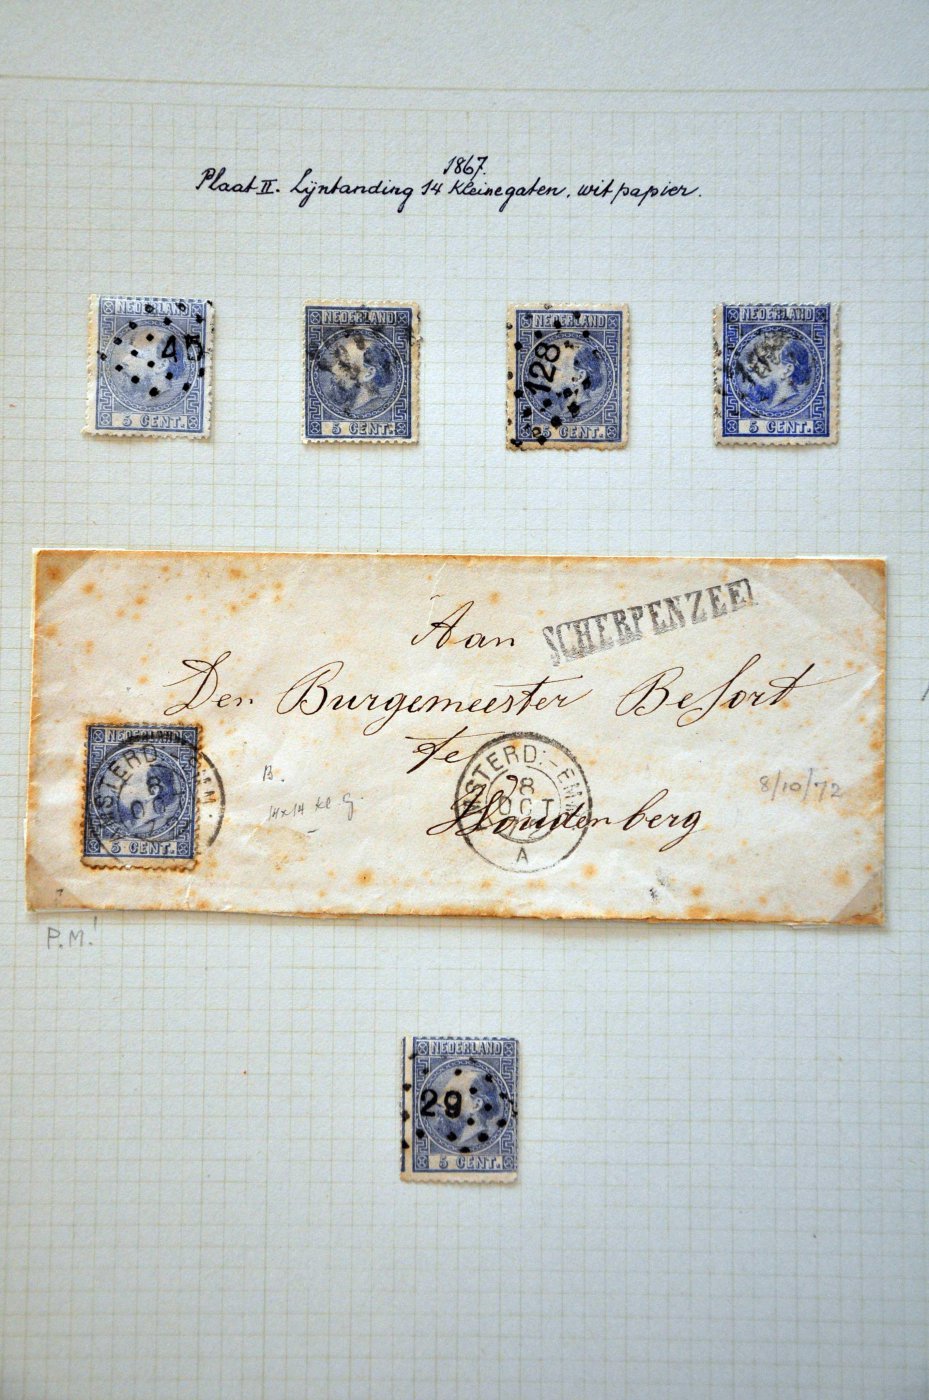 1867.
Plaat II. Lijntanding 14 Kleine gaten, wit papier.
NEDERLAND
45
5 CENT.
NEDERLAND
5 CENT.
NEDERLAND
128
5 CENT.
NEDERLAND
5 CENT.
SCHERPENZEEL
Aan
Den Burgemeester
te
Woudenberg
NEDERLAND
5 CENT.
B.
14x14 kl G.
AMSTERD:-EMM
8
OCT
A
8/10/72
P.M.!
NEDERLAND
29
5 CENT.